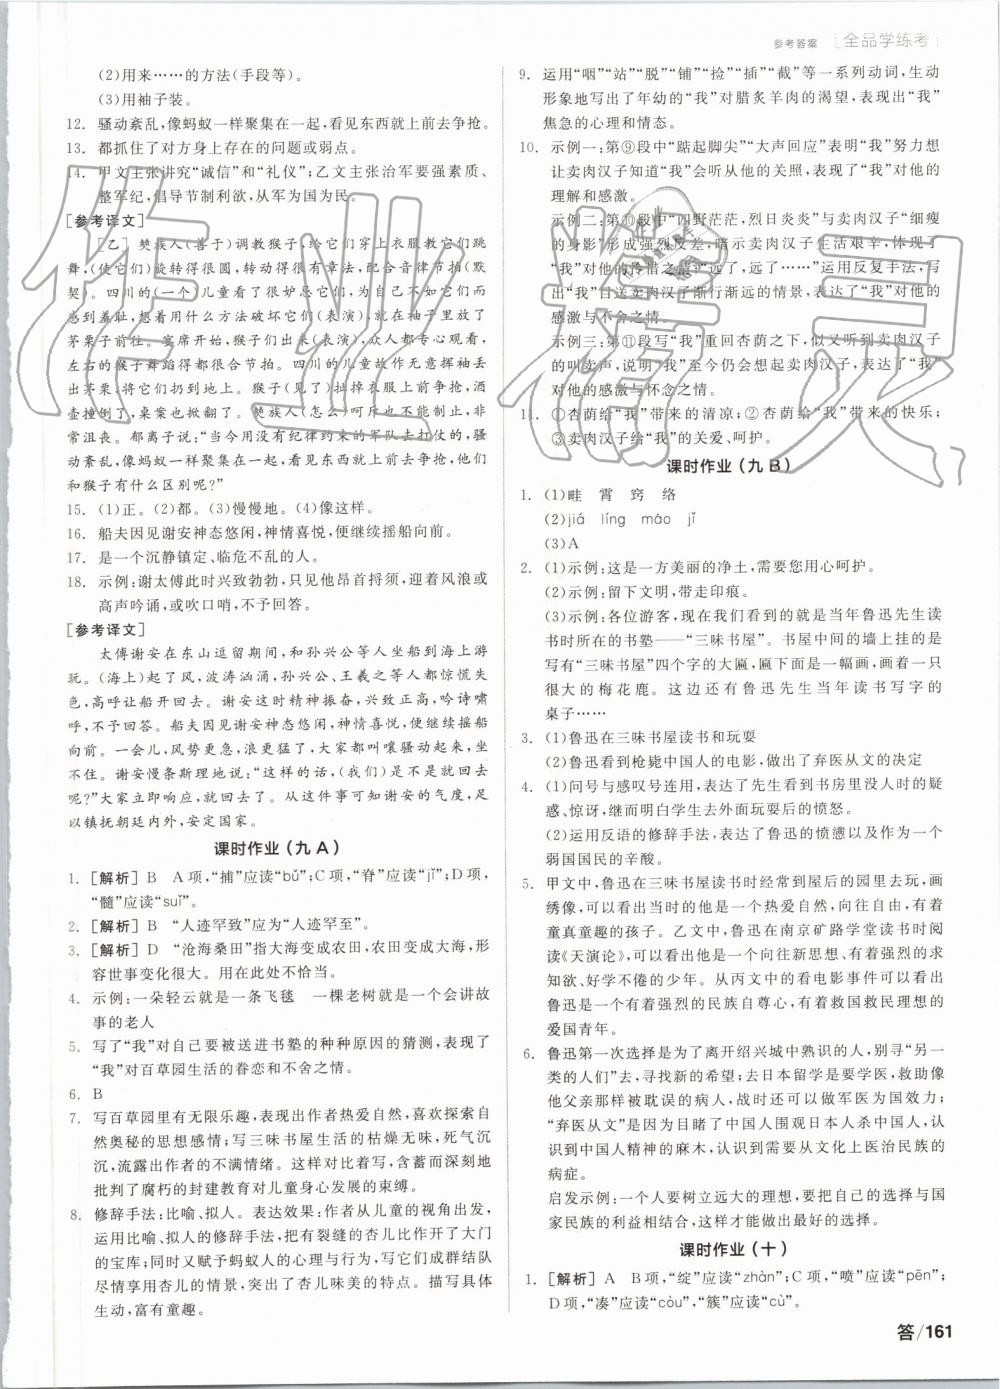 参考答案 全品学练考
(2)用来……的方法(手段等)。
(3)用袖子装。
12. 骚动紊乱,像蚂蚁一样聚集在一起,看见东西就上前去争抢。
13. 都抓住了对方身上存在的问题或弱点。
14. 甲文主张讲究“诚信”和“礼仪”;乙文主张治军要强素质、
整军纪,倡导节制利欲,从军为国为民。
[参考译文]
[乙] 僰族人(善于)调教猴子,给它们穿上衣服教它们跳
舞,(使它们)旋转得很圆,转动得很有章法,配合音律节拍(默
契)。四川的(一个)儿童看了很妒忌它们,为自己不如它们而
感到羞耻,想着用什么方法破坏它们(表演),就在袖子里放了
茅栗子前往。宴席开始,猴子们出来(表演),众人都专心观看,
左右的猴子舞蹈得都很合节拍。四川的儿童故作无意挥袖丢
出茅栗,将它们扔到地上。猴子(见了)扯掉衣服去争抢,酒
壶撞倒了,桌案也掀翻了。僰族人(怎么)呵斥也不能制止,非
常沮丧。郁离子说:“当今用没有纪律约束的军队去打仗的,骚
动紊乱,像蚂蚁一样聚集在一起,看见东西就上前去争抢,他们
和猴子有什么区别呢?”
15. (1)正。(2)都。(3)慢慢地。(4)像这样。
16. 船夫因见谢安神态悠闲,神情喜悦,便继续摇船向前。
17. 是一个沉静镇定、临危不乱的人。
18. 示例:谢太傅此时兴致勃勃,只见他昂首捋须,迎着风浪或
高声吟诵,或吹口哨,不予回答。
[参考译文]
太傅谢安在东山逗留期间,和孙兴公等人坐船到海上游
玩。(海上)起了风,波涛汹涌,孙兴公、王羲之等人都惊慌失
色,高呼让船开回去。谢安这时精神振奋,兴致正高,吟诗啸
呼,不予回答。船夫因见谢安神态悠闲,神情喜悦,便继续摇船
向前。一会儿,风势更急,浪更猛了,大家都叫嚷骚动起来,坐
不住。谢安慢条斯理地说:“这样的话,(我们)是不是就回去
呢?”大家立即响应,就回去了。从这件事可知谢安的气度,足
以镇抚朝廷内外,安定国家。
课时作业(九A)
1. [解析] B A项,“捕”应读“bǔ”;C项,“脊”应读“jǐ”;D项,
“髓”应读“suǐ”。
2. [解析] B “人迹罕致”应为“人迹罕至”。
3. [解析] D “沧海桑田”指大海变成农田,农田变成大海,形
容世事变化很大。用在此处不恰当。
4. 示例:一朵轻云就是一条飞毯 一棵老树就是一个会讲故
事的老人
5. 写了“我”对自己要被送进书塾的种种原因的猜测,表现了
“我”对百草园生活的眷恋和不舍之情。
6. B
7. 写百草园里有无限乐趣,表现出作者热爱自然,喜欢探索自
然奥秘的思想感情;写三味书屋生活的枯燥无味,死气沉
沉,流露出作者的不满情绪。这样对比着写,含蓄而深刻地
批判了腐朽的封建教育对儿童身心发展的束缚。
8. 修辞手法:比喻、拟人。表达效果:作者从儿童的视角出发,
运用比喻、拟人的修辞手法,把有裂缝的杏儿比作开了大门
的宝库;同时又赋予蚂蚁人的心理与行为,写它们成群结队
尽情享用杏儿的情景,突出了杏儿味美的特点。描写具体
生动,富有童趣。
9. 运用“咽”“站”“脱”“铺”“捡”“插”“截”等一系列动词,生动
形象地写出了年幼的“我”对腊炙羊肉的渴望,表现出“我”
焦急的心理和情态。
10. 示例一:第⑨段中“踮起脚尖”“大声回应”表明“我”努力想
让卖肉汉子知道“我”会听从他的关照,表现了“我”对他的
理解和感激。
示例二:第⑪段中“四野茫茫,烈日炎炎”与卖肉汉子“细瘦
的身影”形成强烈反差,暗示卖肉汉子生活艰辛,体现了
“我”对他的怜惜之情;“远了,远了……”运用反复手法,写
出“我”目送卖肉汉子渐行渐远的情景,表现了“我”对他的
感激与不舍之情。
示例三:第⑪段写“我”重回杏荫之下,似又听到卖肉汉子
的关照,表现了“我”至今仍会想起卖肉汉子,表达了“我”
对他的感激与怀念之情。
11. ①杏荫给“我”带来的清凉;②杏荫给“我”带来的快乐;
③卖肉汉子给“我”的关爱、呵护。
课时作业(九B)
1. (1)畦 霄 窍 络
(2)jiá líng máo jǐ
(3)A
2. (1)示例:这是一方美丽的净土,需要您用心呵护。
(2)示例:留下文明,带走印痕。
(3)示例:各位游客,现在我们看到的就是当年鲁迅先生读
书时所在的书塾——“三味书屋”。书屋中间的墙上挂的是
写有“三味书屋”四个字的大匾,匾下面是一幅画,画着一只
很大的梅花鹿。这边还有鲁迅先生当年读书写字的
桌子……
3. (1)鲁迅在三味书屋读书和玩耍
(2)鲁迅看到枪毙中国人的电影,做出了弃医从文的决定
4. (1)问号与感叹号连用,表达了先生看到书房里没人时的疑
惑、惊讶,继而明白学生去外面玩耍后的愤怒。
(2)运用反语的修辞手法,表达了鲁迅的愤懑以及作为一个
弱国国民的辛酸。
5. 甲文中,鲁迅在三味书屋读书时经常到屋后的园里去玩,画
绣像,可以看出当时的他是一个热爱自然,向往自由,有着
童真童趣的孩子。乙文中,鲁迅在南京矿路学堂读书时阅
读《天演论》,可以看出他是一个向往新思想、有着强烈的求
知欲、好学不倦的少年。从丙文中的看电影事件可以看出
鲁迅是一个有着强烈的民族自尊心,有着救国救民理想的
爱国青年。
6. 鲁迅第一次选择是为了离开绍兴城中熟识的人,别寻“另一
类的人们”去,寻找新的希望;去日本留学是要救治像
他父亲那样被耽误的病人,战时还可以做军医为国效力;
“弃医从文”是因为目睹了中国人围观日本人杀中国人,意
识到中国人精神的麻木,认识到需要从文上医治民族的
病症。
启发示例:一个人要树立远大的理想,要把自己的选择与国
家民族的利益相结合,这样才能做出最好的选择。
课时作业(十)
1. [解析] A B项,“绽”应读“zhàn”;C项,“喷”应读“pēn”;
D项,“凑”应读“còu”,“簇”应读“cù”。
答/161
作业精灵